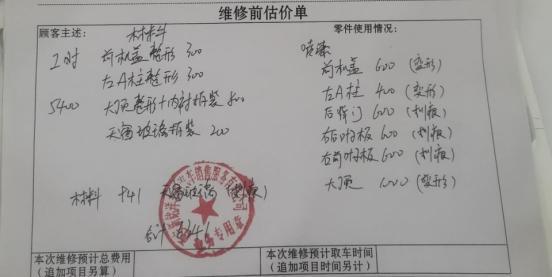 维修前估价单
顾客主述:
材料
零件使用情况:
工时
前机盖整形 300
喷漆
前机盖 600 (变形)
左A柱整形 300
左A柱 400 (变形)
5400
大顶整形+内衬拆装 800
后背门 600 (划痕)
天窗玻璃拆装 200
右后叶板 600 (划痕)
右前叶板 600 (划痕)
大顶 1000 (变形)
材料 941 天窗玻璃
合计
本次维修预计总费用
(追加项目另算)
本次维修预计取车时间
(追加项目时间另计)